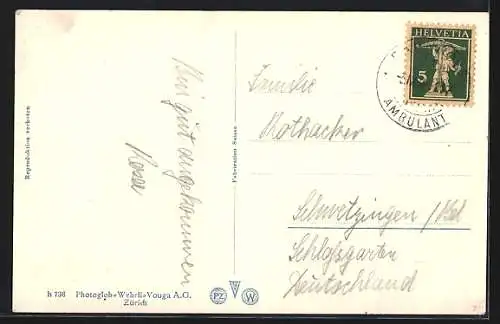 Reproduktion verboten
Hier gut angekommen
Rosa
h 738 Photoglob-Wehrli & Vouga A.G.
Zürich
Fabrication Suisse
PZ W
HELVETIA
5
AMBULANT
Familie
Rothacker
Schwetzingen
Schloßgarten
Deutschland